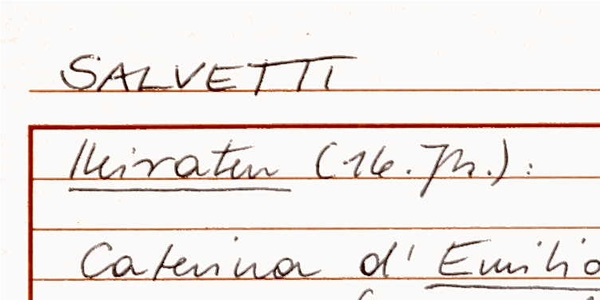 SALVETTI
Heiraten (16. Jh.):
Caterina d'Emilio